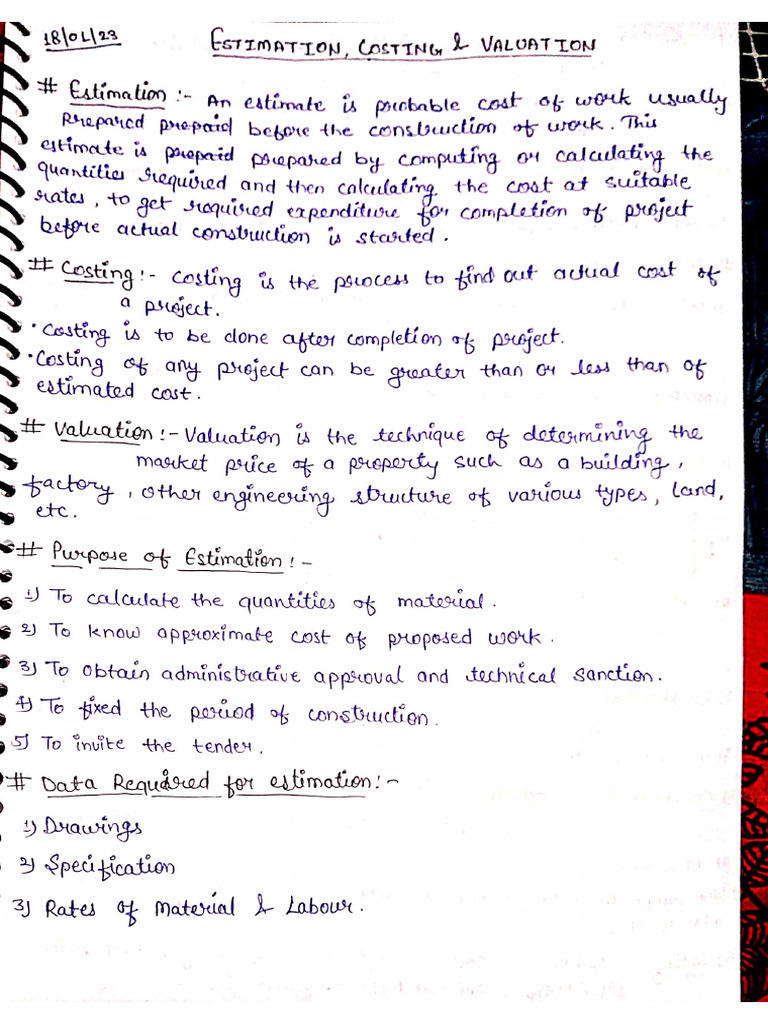 18/01/23
ESTIMATION, COSTING & VALUATION
# Estimation :- An estimate is probable cost of work usually
Prepared prepaid before the construction of work. This
estimate is prepaid prepared by computing or calculating the
quantities required and then calculating the cost at suitable
rates, to get required expenditure for completion of project
before actual construction is started.
# Costing :- Costing is the process to find out actual cost of
a project.
• Costing is to be done after completion of project.
• Costing of any project can be greater than or less than of
estimated cost.
# Valuation :- Valuation is the technique of determining the
market price of a property such as a building,
factory, other engineering structure of various types, land,
etc.
# Purpose of Estimation :-
1) To calculate the quantities of material.
2) To know approximate cost of proposed work.
3) To obtain administrative approval and technical sanction.
4) To fixed the period of construction.
5) To invite the tender.
# Data Required for estimation :-
1) Drawings
2) Specification
3) Rates of Material & Labour.